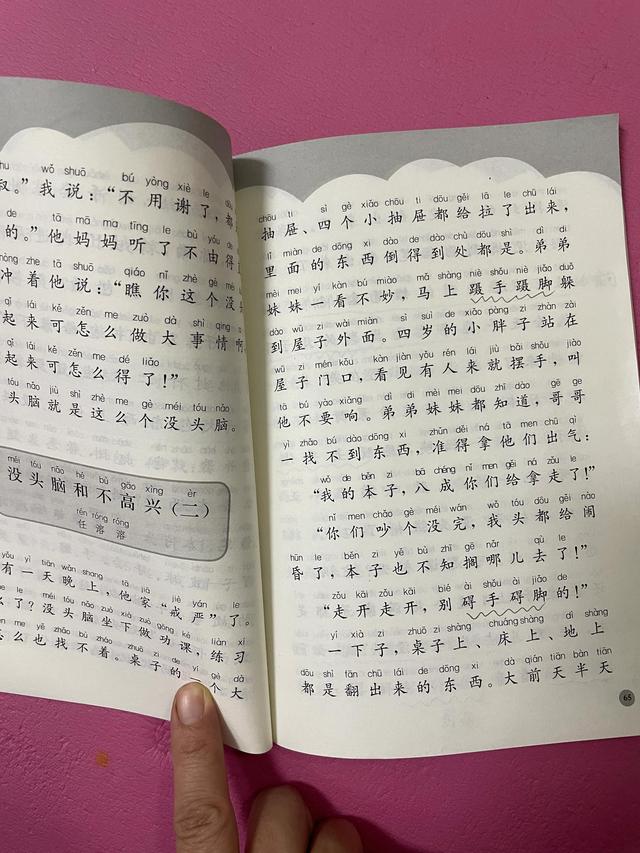 hu wǒ shuō bú yòng xiè le
叔。”我说：“不用谢了，都
de tā mā ma tīng le bù yóu de
的。”他妈妈听了不由得
zhe tā shuō qiáo nǐ zhè gè méi
冲着他说：“瞧你这个没
qǐ lái kě zěn me zuò dà shì qing
起来可怎么做大事情啊
qǐ lái kě zěn me dé liǎo
起来可怎么得了！”
tóu nǎo jiù shì zhè me gè méi tóu nǎo
头脑就是这么个没头脑。
méi tóu nǎo hé bù gāo xìng èr
没头脑和不高兴（二）
rén róng róng
任溶溶
yǒu yì tiān wǎn shang tā jiā jiè yán le
有一天晚上，他家“戒严”了。
le méi tóu nǎo zuò xià zuò gōng kè liàn xí
么了？没头脑坐下做功课，练习
me yě zhǎo bù zháo zhuō zi de yí gè dà
怎么也找不着。桌子的一个大
chōu ti sì gè xiǎo chōu ti dōu gěi lā le chū lái
抽屉、四个小抽屉都给拉了出来，
lǐ miàn de dōng xi dào de dào chù dōu shì dì di
里面的东西倒得到处都是。弟弟
mèi mei yí kàn bú miào mǎ shàng niè shǒu niè jiǎo duǒ
妹妹一看不妙，马上蹑手蹑脚躲
dào wū zi wài miàn sì suì de xiǎo pàng zi zhàn zài
到屋子外面。四岁的小胖子站在
wū zi mén kǒu kàn jiàn yǒu rén lái jiù bǎi shǒu jiào
屋子门口，看见有人来就摆手，叫
tā bú yào xiǎng dì di mèi mei dōu zhī dào gē ge
他不要响。弟弟妹妹都知道，哥哥
yì zhǎo bú dào dōng xi zhǔn děi ná tā men chū qì
一找不到东西，准得拿他们出气：
wǒ de běn zi bā chéng nǐ men gěi ná zǒu le
“我的本子，八成你们给拿走了！”
nǐ men chǎo gè méi wán wǒ tóu dōu gěi nào
“你们吵个没完，我头都给闹
hūn le běn zi yě bù zhī gē nǎr qù le
昏了，本子也不知搁哪儿去了！”
zǒu kāi zǒu kāi bié ài shǒu ài jiǎo de
“走开走开，别碍手碍脚的！”
yí xià zi zhuō zi shàng chuáng shàng dì shàng
一下子，桌子上、床上、地上
dōu shì fān chū lái de dōng xi dà qián tiān bàn tiān
都是翻出来的东西。大前天半天
65